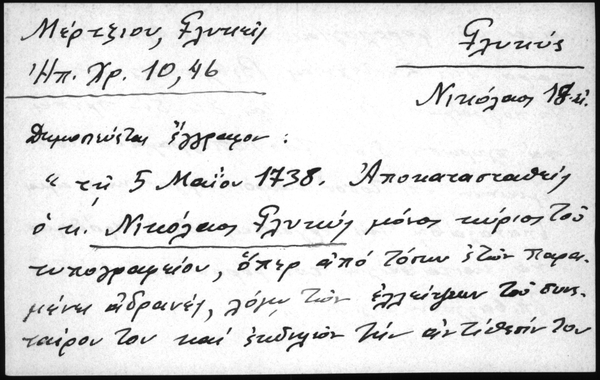 Μέρτζιου, Γλυκεῖς
Ἠπ. Χρ. 10, 46
Γλυκύς
Νικόλαος 18 αἰ.
Δημοσιεύεται ἔγγραφον :
" τῇ 5 Μαΐου 1738. Ἀποκατασταθείς
ὁ κ. Νικόλαος Γλυκύς μόνος κύριος τοῦ
τυπογραφείου, ὅπερ ἀπό τόσων ἐτῶν παρα-
μένει ἀδρανές, λόγῳ τῶν ἐλλείψεων τοῦ συνε-
ταίρου του καί ἐκδηλῶν τήν ἀντίθεσίν του